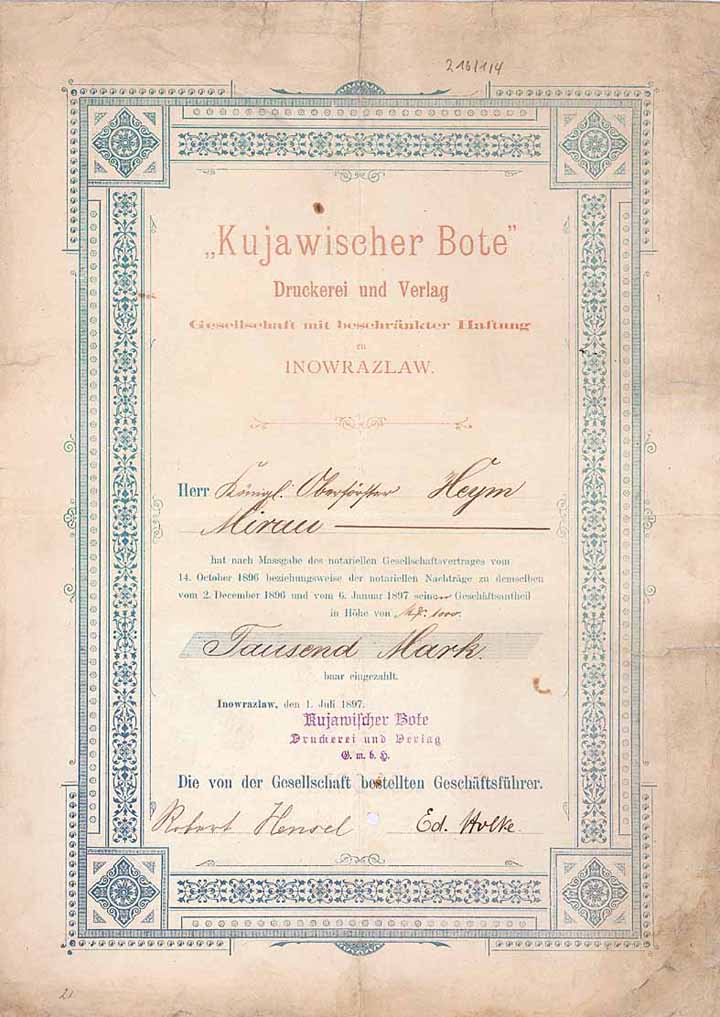 216/1/4
„Kujawischer Bote”
Druckerei und Verlag
Gesellschaft mit beschränkter Haftung
zu
INOWRAZLAW.
Herr Königl. Oberförster Heym
Mirau
hat nach Massgabe des notariellen Gesellschaftsvertrages vom
14. October 1896 beziehungsweise der notariellen Nachträge zu demselben
vom 2. December 1896 und vom 6. Januar 1897 seinen Geschäftsantheil
in Höhe von Mk. 1000.
Tausend Mark.
baar eingezahlt.
Inowrazlaw, den 1. Juli 1897.
Kujawischer Bote
Druckerei und Verlag
G. m. b. H.
Die von der Gesellschaft bestellten Geschäftsführer.
Robert Hensel Ed. Holke.